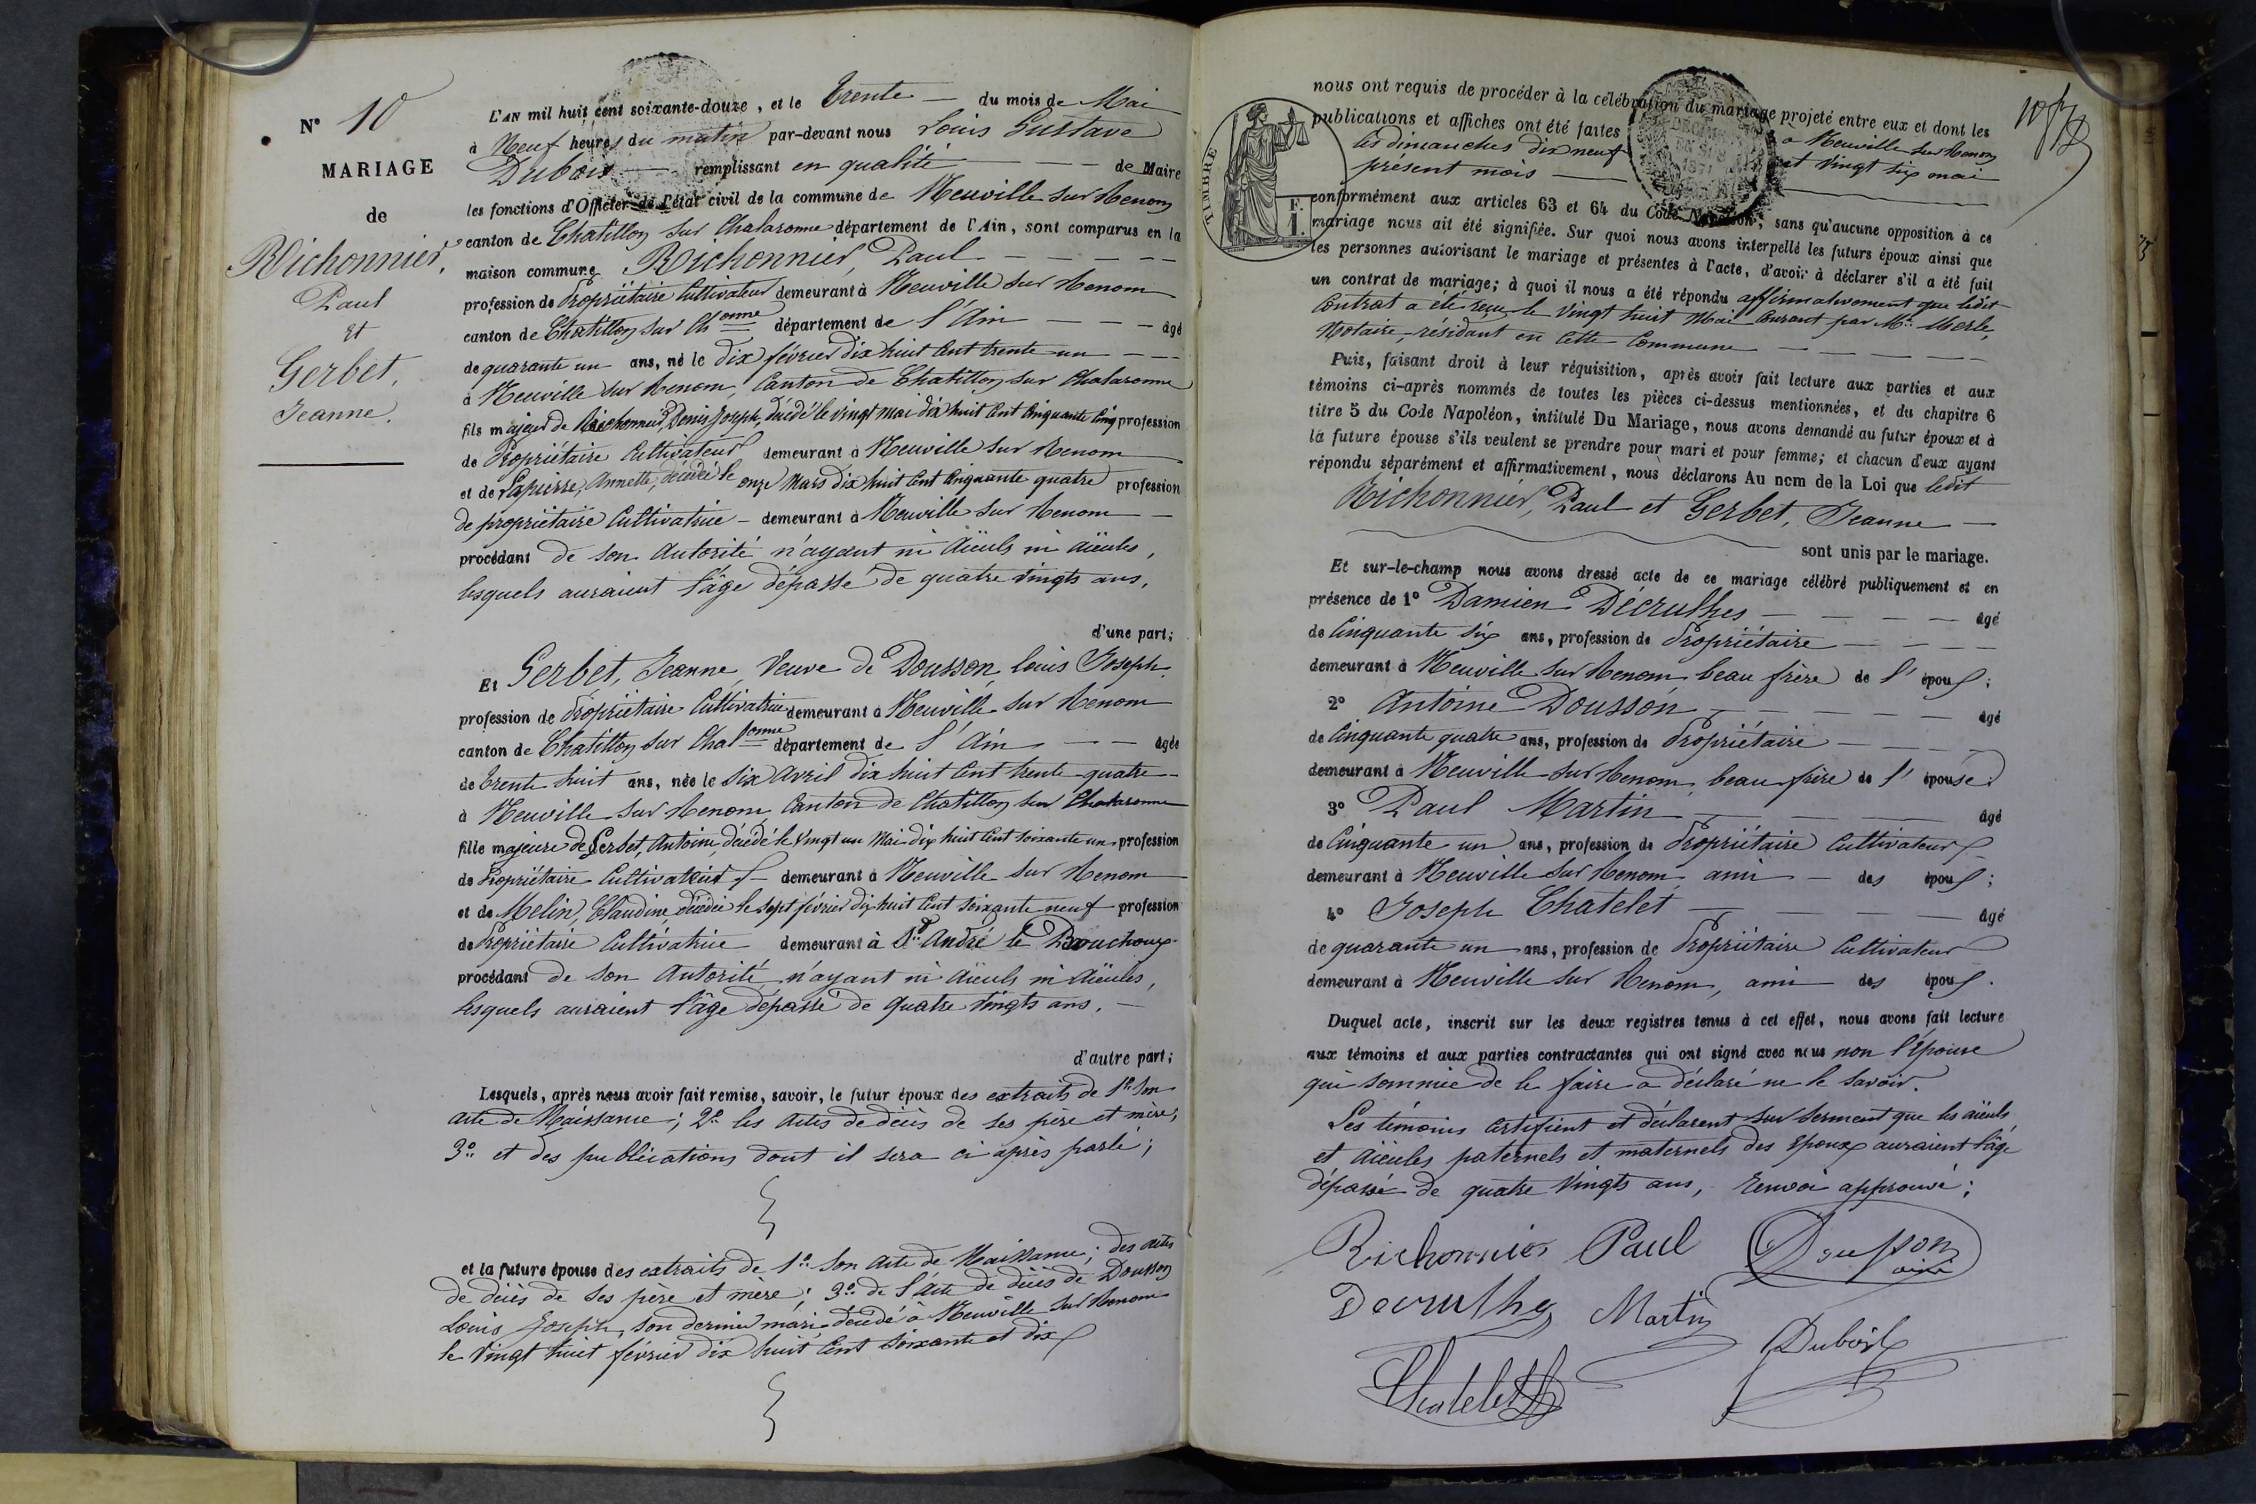 N° 10
MARIAGE
de
Richonnier,
Paul
et
Gerbet,
Jeanne.
L'AN mil huit cent soixante-douze, et le Trente — du mois de Mai
à Neuf heures du matin par-devant nous Louis Gustave
Dubois — remplissant en qualité — de Maire
les fonctions d'Officier de l'état civil de la commune de Neuville sur Renom
canton de Chatillon sur Chalaronne département de l'Ain, sont comparus en la
maison commune Richonnier, Paul — — — —
profession de Propriétaire Cultivateur demeurant à Neuville sur Renom
canton de Chatillon sur Chonne département de l'Ain — — — âgé
de quarante un ans, né le dix février dix huit cent trente un — —
à Neuville sur Renom, Canton de Chatillon sur Chalaronne
fils majeur de Richonnier, Denis Joseph, décédé le vingt mai dix huit cent cinquante cinq profession
de Propriétaire Cultivateur demeurant à Neuville sur Renom
et de Lapierre, Annette, décédée le onze Mars dix huit cent cinquante quatre profession
de propriétaire Cultivatrice — demeurant à Neuville sur Renom —
procédant de son autorité n'ayant ni aïeuls ni aïeules,
lesquels auraient l'âge dépassé de quatre vingts ans.
d'une part;
Et Gerbet, Jeanne, Veuve de Dousson, Louis Joseph.
profession de Propriétaire Cultivatrice demeurant à Neuville sur Renom
canton de Chatillon sur Chalronne département de l'Ain — — agée
de Trente huit ans, née le six Avril dix huit cent trente quatre —
à Neuville sur Renom, Canton de Chatillon sur Chalaronne
fille majeure de Gerbet, Antoine, décédé le vingt un Mai dix huit cent soixante un profession
de Propriétaire Cultivateur — demeurant à Neuville sur Renom
et de Melin, Claudine, décédée le sept février dix huit cent soixante neuf profession
de Propriétaire Cultivatrice demeurant à St André le Bouchoux
procédant de son autorité, n'ayant ni aïeuls ni aïeules,
lesquels auraient l'âge dépassé de quatre vingts ans. —
d'autre part;
Lesquels, après nous avoir fait remise, savoir, le futur époux des extraits de 1° Son
acte de Naissance; 2° les actes de décès de ses père et mère;
3° et des publications dont il sera ci après parlé;
et la future épouse des extraits de 1° Son acte de Naissance; des actes
de décès de ses père et mère; 3° de l'acte de décès de Dousson
Louis Joseph, son dernier mari décédé à Neuville sur Renom
le vingt huit février dix huit cent soixante et dix
nous ont requis de procéder à la célébration du mariage projeté entre eux et dont les
publications et affiches ont été faites à Neuville sur Renom
les dimanches dix neuf et vingt six mai
présent mois —
TIMBRE
F.
1.
conformément aux articles 63 et 64 du Code Napoléon, sans qu'aucune opposition à ce
mariage nous ait été signifiée. Sur quoi nous avons interpellé les futurs époux ainsi que
les personnes autorisant le mariage et présentes à l'acte, d'avoir à déclarer s'il a été fait
un contrat de mariage; à quoi il nous a été répondu affirmativement que ledit
Contrat a été reçu le vingt huit Mai Courant par Me Merle,
Notaire, résidant en cette Commune — — — —
Puis, faisant droit à leur réquisition, après avoir fait lecture aux parties et aux
témoins ci-après nommés de toutes les pièces ci-dessus mentionnées, et du chapitre 6
titre 5 du Code Napoléon, intitulé Du Mariage, nous avons demandé au futur époux et à
la future épouse s'ils veulent se prendre pour mari et pour femme; et chacun d'eux ayant
répondu séparément et affirmativement, nous déclarons Au nom de la Loi que ledit
Richonnier, Paul et Gerbet, Jeanne —
sont unis par le mariage.
Et sur-le-champ nous avons dressé acte de ce mariage célébré publiquement et en
présence de 1° Damien Décruthes — — — — âgé
de Cinquante six ans, profession de Propriétaire — — —
demeurant à Neuville sur Renom beau frère de l'époux;
2° Antoine Dousson — — — — — âgé
de Cinquante quatre ans, profession de Propriétaire — — —
demeurant à Neuville sur Renom, beau frère de l'épouse.
3° Paul Martin — — — — âgé
de Cinquante un ans, profession de Propriétaire Cultivateur
demeurant à Neuville sur Renom ami — des époux;
4° Joseph Chatelet — — — — — âgé
de quarante un ans, profession de Propriétaire Cultivateur
demeurant à Neuville sur Renom, ami — des époux.
Duquel acte, inscrit sur les deux registres tenus à cet effet, nous avons fait lecture
aux témoins et aux parties contractantes qui ont signé avec nous non l'épouse
qui sommée de le faire a déclaré ne le savoir.
Les témoins certifient et déclarent sur serment que les aïeuls
et aïeules paternels et maternels des époux auraient l'âge
dépassé de quatre vingts ans, renvoi approuvé;
Richonnier Paul Dousson
ainé
Decruthes Martin
Dubois
Chatelet